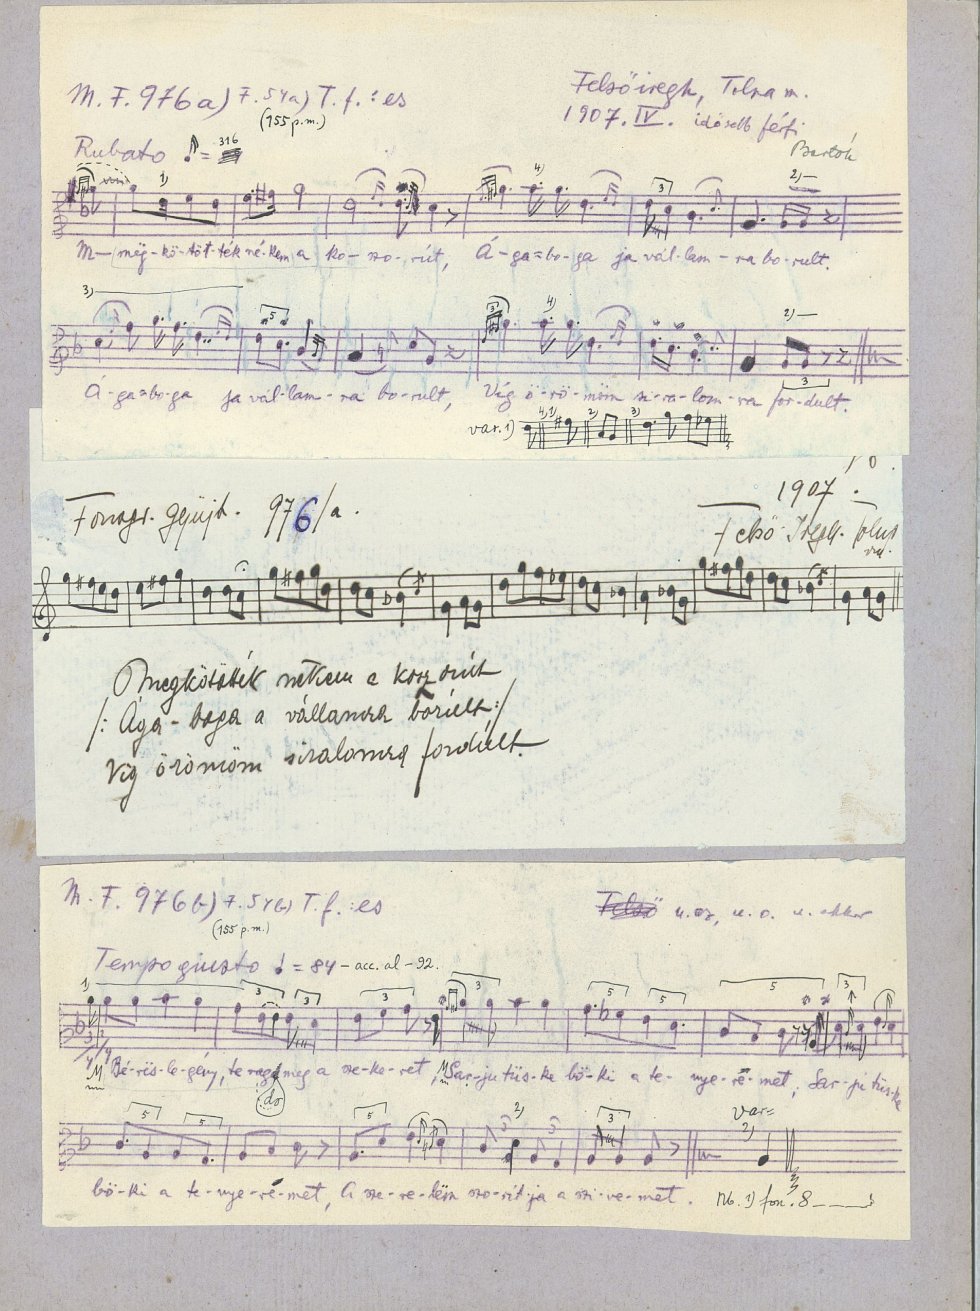 M. F. 976a) F. 54a) T. f. : es
(155 p.m.)
Felsőiregh, Tolna m.
1907. IV. idősebb férfi
Bartók
Rubato ♪ = 316
1) 4) 3 2)
M— meg-kö-töt-ték né-kem a ko-szo-rút, Á-ga=bo-ga ja vál-lam-ra bo-rult.
3) 5 3 4) 2)
Á-ga=bo-ga ja vál-lam-ra bo-rult, Víg ö-rö-möm si-ra-lom-ra for-dult.
3
var. 1) 4) 2) 3)
Fonogr. Gyűjt. 976/a.
1907.
Felső Iregh. Tolna
m.
Ó megkötötték nékem a koszorút
/: Ága-boga a vállamra bórúlt :/
Víg örömöm siralomra fordúlt.
M. F. 976b) F. 54b) T. f. : es
(155 p.m.)
u. az, u. o. u. akkor
Tempo giusto ♩ = 84 – acc. al – 92.
1) 3 3 3 3 5 5 5 3
Bé-rës-le-gény, te ragd meg a sze-ke-ret, Sar-ju tüs-ke bö-ki a te-nye-re-met, Sar-jú tüs-ke
do
5 5 5 2) 3 var= 2)
bö-ki a te-nye-re-met, A sze-re-lëm szo-rít-ja a szi-ve-met.
Nb. 1) fon. 8